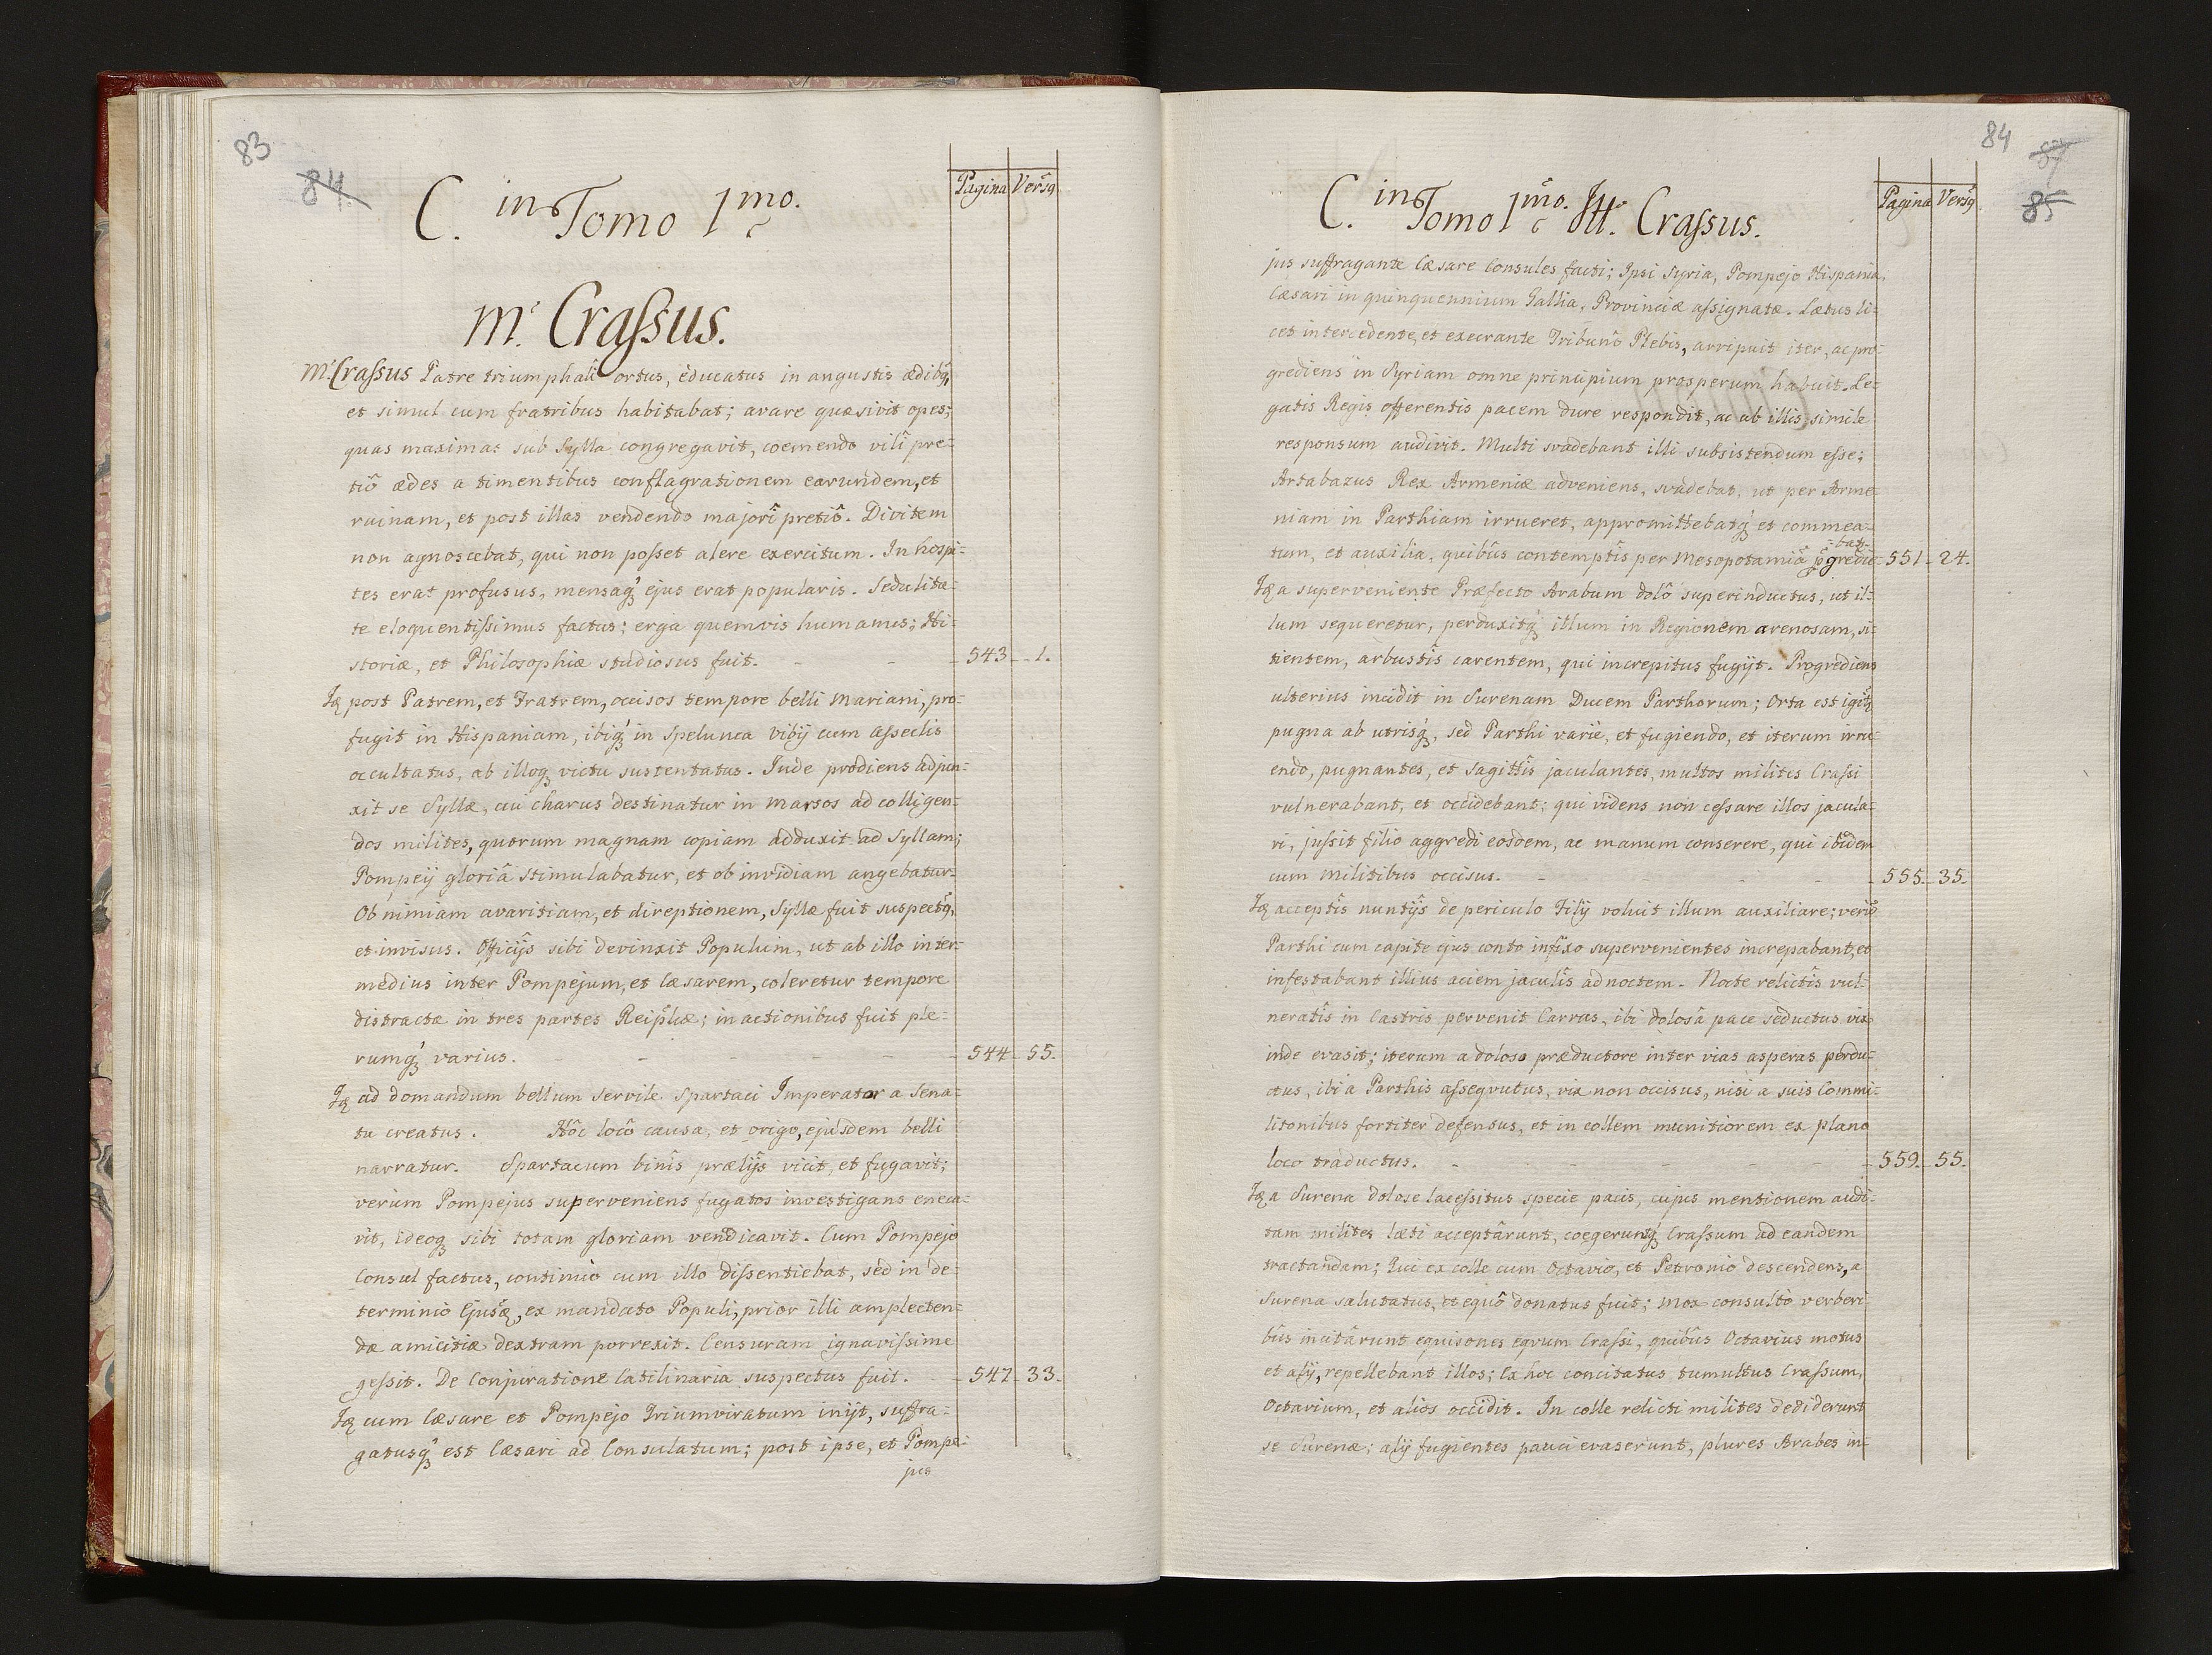 83
84
C. in Tomo 1mo.
Pagina Versq
M. Crassus.
M. Crassus Patre triumphali ortus, educatus in angustis ædibq,
et simul cum fratribus habitabat; avare quæsivit opes;
quas maximas sub Sylla congregavit, coemendo vili pre-
tiô ædes a timentibus conflagrationem earundem, et
ruinam, et post illas vendendo majori pretiô. Divitem
non agnoscebat, qui non posset alere exercitum. In hospi-
tes erat profusus, mensaq ejus erat popularis. Sedulita-
te eloquentissimus factus; erga quemvis humanus; Hi-
storiæ, et Philosophiæ studiosus fuit. - - 543 - 1.
Iq post Patrem, et Fratrem, occisos tempore belli Mariani, pro-
fugit in Hispaniam, ibiq in Spelunca Vibij cum asseclis
occultatus, ab illoq victu sustentatus. Inde prodiens adjun-
xit se Syllæ, cui charus destinatur in Marsos ad colligen-
dos milites, quorum magnam copiam adduxit ad Syllam;
Pompeij gloriâ stimulabatur, et ob invidiam angebatur.
Ob nimiam avaritiam, et direptionem, Syllæ fuit suspectq,
et invisus. Officijs sibi devinxit Populum, ut ab illo inter-
medius inter Pompejum, et Cæsarem, coleretur tempore
distractæ in tres partes Reiplicæ; in actionibus fuit ple-
rumq varius. - - - - - 544 - 55.
Iq ad domandum bellum servile Spartaci Imperator a Sena-
tu creatus. Hôc locô causa, et origo, ejusdem belli
narratur. Spartacum binis prælijs vicit, et fugavit;
verùm Pompejus superveniens fugatos investigans eneca-
vit, ideoq sibi totam gloriam vendicavit. Cum Pompejo
Consul factus, continuò cum illo dissentiebat, sed in de-
terminio Ejusq, ex mandato Populi, prior illi amplecten-
dæ amicitiæ dextram porrexit. Censuram ignavissime
gessit. De Conjuratione Catilinaria suspectus fuit. - 547 - 33.
Iq cum Cæsare et Pompejo Triumviratum inijt, suffra-
gatusq est Cæsari ad Consulatum; post ipse, et Pompe-
jus
84
85
C. in Tomo 1mo. M. Crassus.
Pagina Versq
jus suffragante Cæsare Consules facti; Ipsi Syria, Pompejo Hispania,
Cæsari in quinquennium Gallia, Provinciæ assignatæ. Lætus li-
cet intercedente, et execrante Tribunô Plebis, arripuit iter, ac pro-
grediens in Syriam omne principium prosperum habuit. Le-
gatis Regis offerentis pacem dure respondit, ac ab illis simile
responsum audivit. Multi svadebant illi subsistendum esse;
Artabazus Rex Armeniæ adveniens, svadebat, ut per Arme-
niam in Parthiam irrueret, appromittebatq et commea-
tum, et auxilia, quibûs contemptis per Mesopotamiâ pgredie- 551 - 24.
-batr
Iq a superveniente Præfecto Arabum dolô superinductus, ut il-
lum sequeretur, perduxitq illum in Regionem arenosam, si-
tientem, arbustis carentem, qui increpitus fugijt. Progrediens
ulterius incidit in Surenam Ducem Parthorum; Orta est igitr
pugna ab utrisq, sed Parthi variè, et fugiendo, et iterum irru-
endo, pugnantes, et sagittis jaculantes, multos milites Crassi
vulnerabant, et occidebant; qui videns non cessare illos jacula-
ri, jussit filio aggredi eosdem, ac manum conserere, qui ibidem
cum militibus occisus. - - - - 555 - 35.
Iq acceptis nuntijs de periculo Filij voluit illum auxiliare; verùm
Parthi cum capite ejus conto infixo supervenientes increpabant, et
infestabant illius aciem jaculis ad noctem. Nocte relictis vul-
neratis in Castris pervenit Carras, ibi dolosâ pace seductus vix
inde evasit; iterum a doloso præductore inter vias asperas perdu-
ctus, ibi a Parthis assequutus, vix non occisus, nisi a suis Commi-
litonibus fortiter defensus, et in collem munitiorem ex plano
loco traductus. - - - - 559 - 55.
Iq a Surena dolose lacessitus specie pacis, cujus mentionem audi-
tam milites læti acceptârunt, coegeruntq Crassum ad eandem
tractandam; Qui ex colle cum Octavio, et Petronio descendens, a
Surena salutatus, et equô donatus fuit; mox consultò verberi-
bûs incitârunt equisones equum Crassi, quibûs Octavius motus
et alij, repellebant illos; Ex hoc concitatus tumultus Crassum,
Octavium, et alios occidit. In colle relicti milites dediderunt
se Surenæ; alij fugientes pauci evaserunt, plures Arabes in-